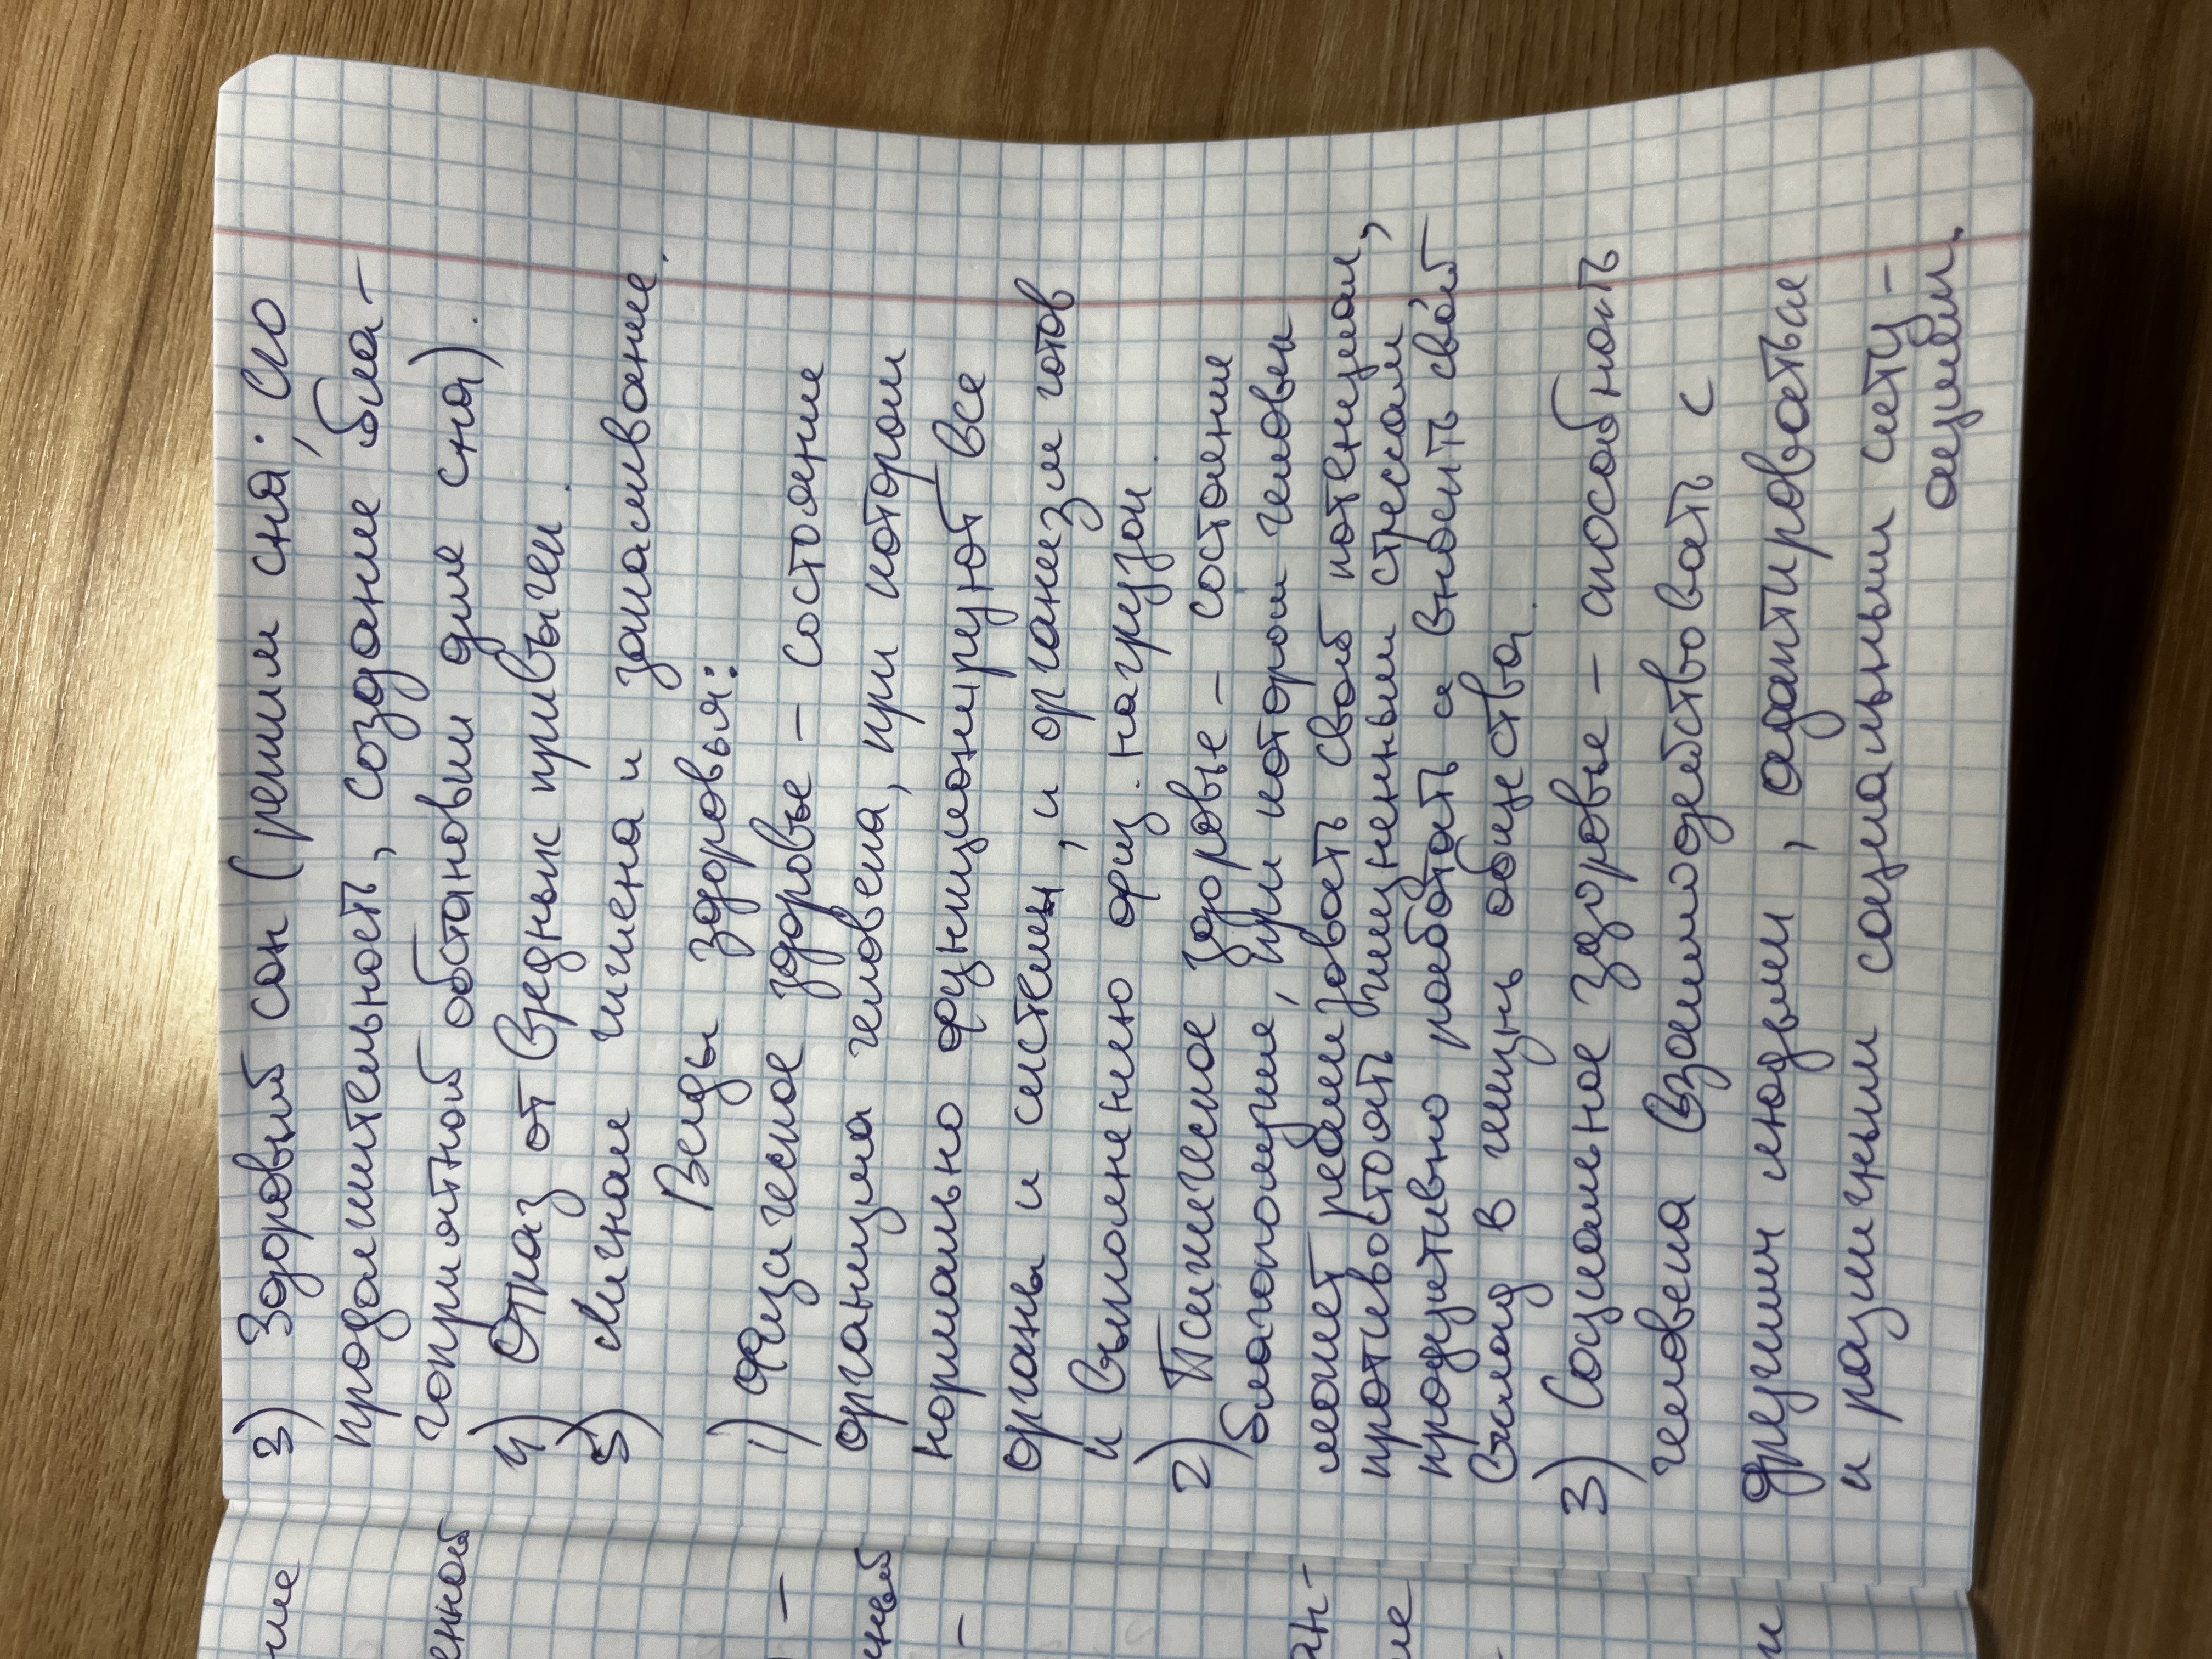 3) Здоровый сон (режим сна; его
продолжительность, создание бла-
гоприятной обстановки для сна).
4) Отказ от вредных привычек.
5) Личная гигиена и закаливание.
Виды здоровья:
1) Физическое здоровье – состояние
организма человека, при котором
нормально функционируют все
органы и системы, и организм готов
к выполнению физ. нагрузок.
2) Психическое здоровье – состояние
благополучия, при котором человек
может реализовать свой потенциал,
противостоять жизненным стрессам,
продуктивно работать и вносить свой
вклад в жизнь общества.
3) Социальное здоровье – способность
человека взаимодействовать с
другими людьми, адаптироваться
к различным социальным ситу-
ациям.
ние
енной
–
нный
–
ан-
ие
и